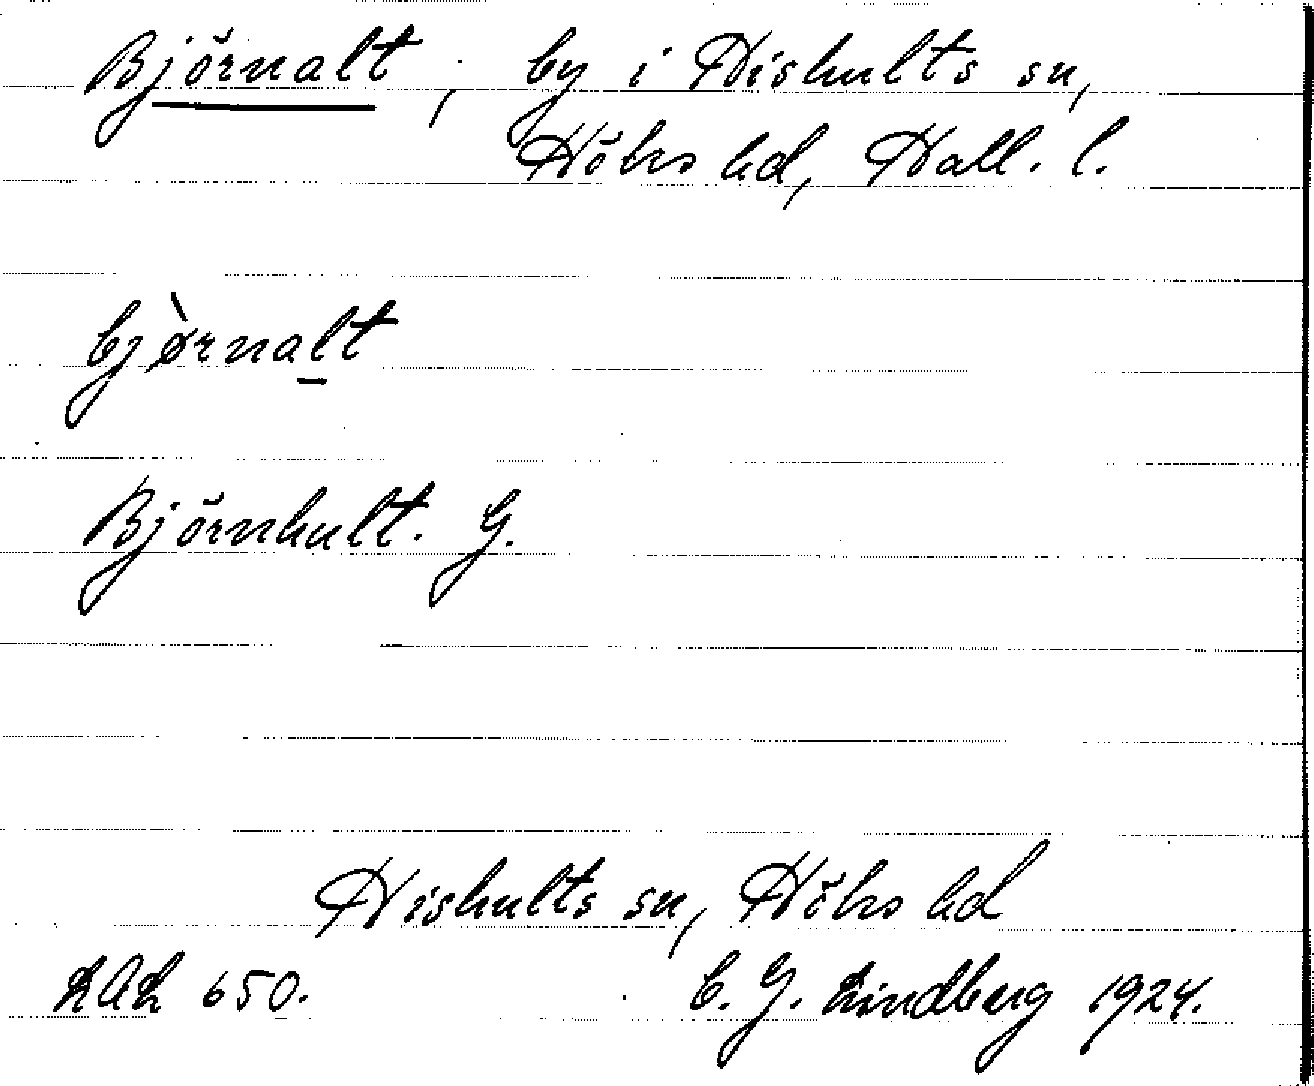 Björnalt, by i Hishults sn,
Höks hd, Hall. l.
bjö̀rnalt
Björnhult. G.
Hishults sn, Höks hd
LAL 650. C. G. Lindberg 1924.